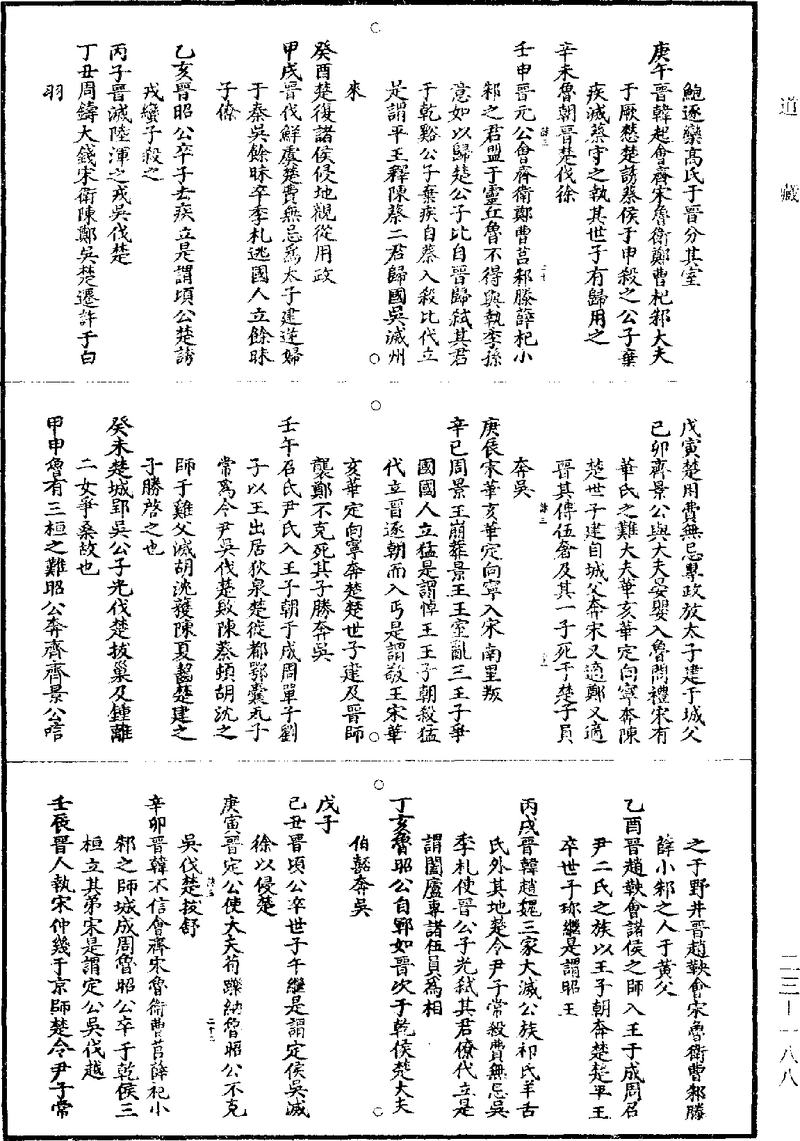 道藏
鮑逐欒高氏于晉分其室
庚午晉韓起會齊宋魯衛鄭曹杞邾大夫
于厥憖楚誘蔡侯于申殺之公子棄
疾滅蔡守之執其世子有歸用之
辛未魯朝晉楚伐徐
壬申晉元公會齊衛鄭曹莒邾滕薛杞小
邾之君盟于靈丘魯不得與執季孫
意如以歸楚公子比自晉歸弒其君
于乾谿公子棄疾自蔡入殺比代立
是謂平王釋陳蔡二君歸國吳滅州
來
癸酉楚復諸侯侵地觀從用政
甲戌晉伐鮮虞楚費無忌爲太子建逆婦
于秦吳餘昧卒季札逃國人立餘昧
子僚
乙亥晉昭公卒子去疾立是謂頃公楚誘
戎蠻子殺之
丙子晉滅陸渾之戎吳伐楚
丁丑周鑄大錢宋衛陳鄭吳楚遷許于白
羽
戊寅楚用費無忌專政放太子建于城父
己卯齊景公與大夫晏嬰入魯問禮宋有
華氏之難大夫華亥華定向寧奔陳
楚世子建自城父奔宋又適鄭又適
晉其傅伍奢及其一子死于楚子員
奔吳
庚辰宋華亥華定向寧入宋南里叛
辛巳周景王崩葬景王王室亂三王子爭
國國人立猛是謂悼王王子朝殺猛
代立晉逐朝而入丐是謂敬王宋華
亥華定向寧奔楚楚世子建及晉師
襲鄭不克死其子勝奔吳
壬午召氏尹氏入王子朝于成周單子劉
子以王出居狄泉楚徙都鄂囊瓦子
常爲令尹吳伐楚敗陳蔡頓胡沈之
師于雞父滅胡沈獲陳夏齧楚建之
子勝啓之也
癸未楚城郢吳公子光伐楚拔巢及鍾離
二女爭桑故也
甲申魯有三桓之難昭公奔齊齊景公唁
之于野井晉趙鞅會宋魯衛曹邾滕
薛小邾之人于黃父
乙酉晉趙鞅會諸侯之師入王于成周召
尹二氏之族以王子朝奔楚楚平王
卒世子珍繼是謂昭王
丙戌晉韓趙魏三家大滅公族祁氏羊舌
氏分其地楚令尹子常殺費無忌吳
季札使晉公子光弒其君僚代立是
謂闔廬專諸伍員爲相
丁亥魯昭公自鄆如晉次于乾侯楚大夫
伯嚭奔吳
戊子
己丑晉頃公卒世子午繼是謂定侯吳滅
徐以侵楚
庚寅晉定公使大夫荀躒納魯昭公不克
吳伐楚拔舒
辛卯晉韓不信會齊宋魯衛曹莒薛杞小
邾之師城成周魯昭公卒于乾侯三
桓立其弟宋是謂定公吳伐越
壬辰晉人執宋仲幾于京師楚令尹子常
二三—一八八